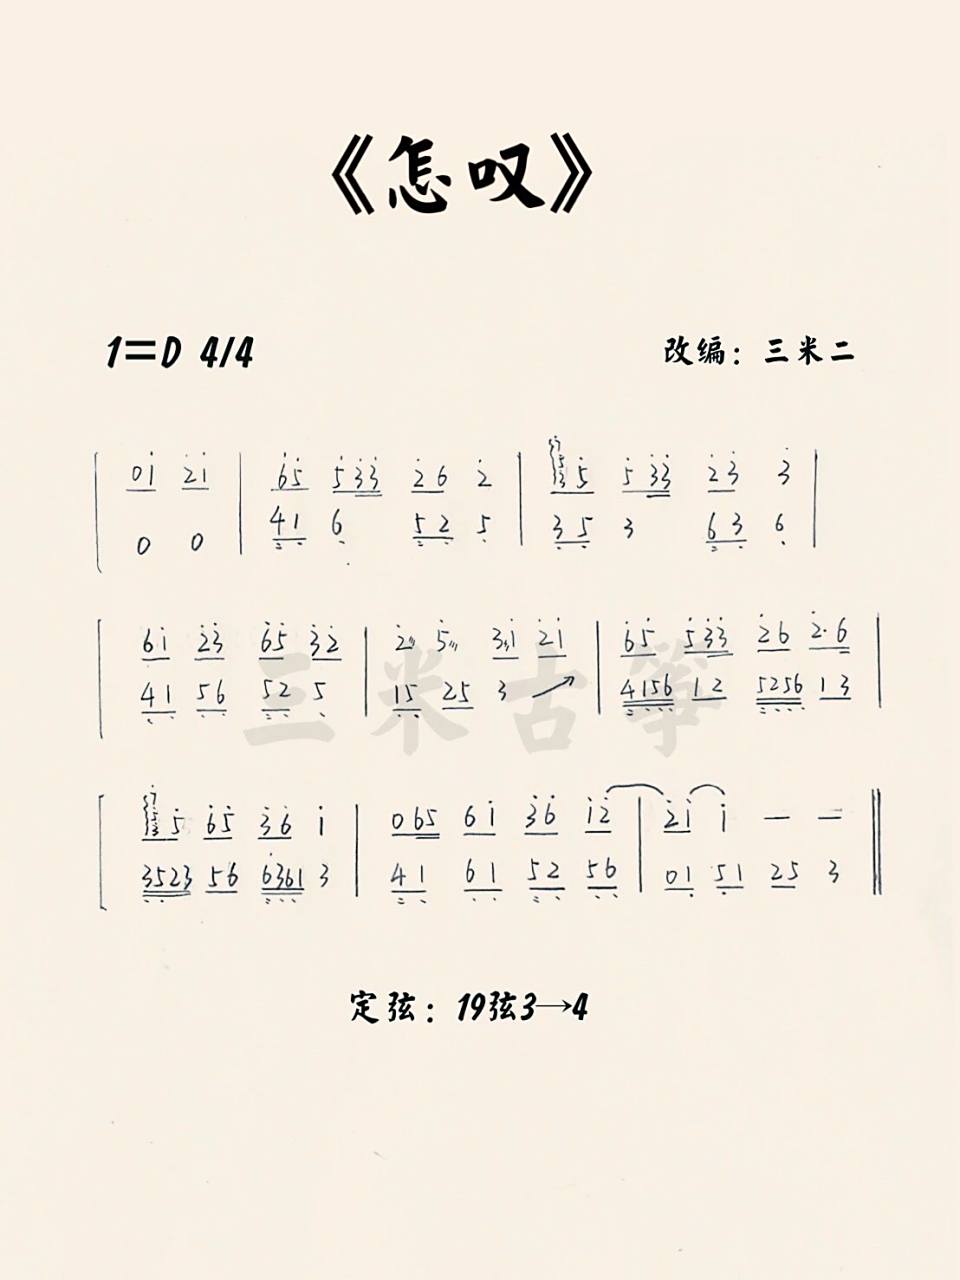 《怎叹》
1=D 4/4 改编：三米二
0i̇ 2̇i̇ | 6̇5̇ 5̇3̇3̇ 2̇6 2̇ | 5̇ 5̇3̇3̇ 2̇3̇ 3̇ |
0 0 | 41 6 52 5 | 35 3 63 6 |
6i̇ 2̇3̇ 6̇5̇ 3̇2̇ | 2̇ 5̇ 3̇i̇ 2̇i̇ | 6̇5̇ 5̇3̇3̇ 2̇6 2̇·6 |
41 56 52 5 | 15 25 3 | 4156 12 5256 13 |
三米古筝
5̇ 6̇5̇ 3̇6̇ i̇ | 065 6i̇ 3̇6̇ i̇2̇ | 2̇i̇ i̇ — — ||
3523 56 6361 3 | 41 61 52 56 | 01 51 25 3
定弦：19弦3→4